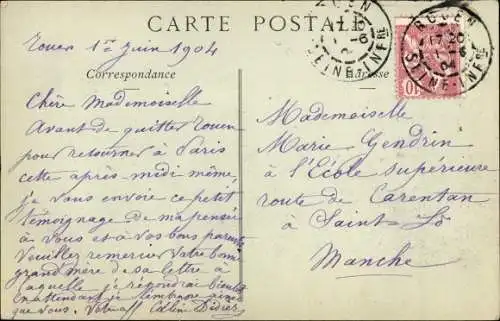 CARTE POSTALE
Correspondance
Adresse
ROUEN
SEINE-INFRE
ROUEN
17 20
SEINE-INFRE
10
Rouen 1er Juin 1904
Chère Mademoiselle
Avant de quitter Rouen
pour retourner à Paris
cette après-midi même,
je vous envoie ce petit
témoignage de ma pensée
à vous et à vos bons parents
Veuillez remercier votre bonne
grand'mère de sa lettre à
laquelle je répondrai bientôt
En attendant je l'embrasse ainsi
que vous. Votre aff Céline Didier
Mademoiselle
Marie Gendrin
à l'École supérieure
route de Carentan
à Saint-Lô
Manche